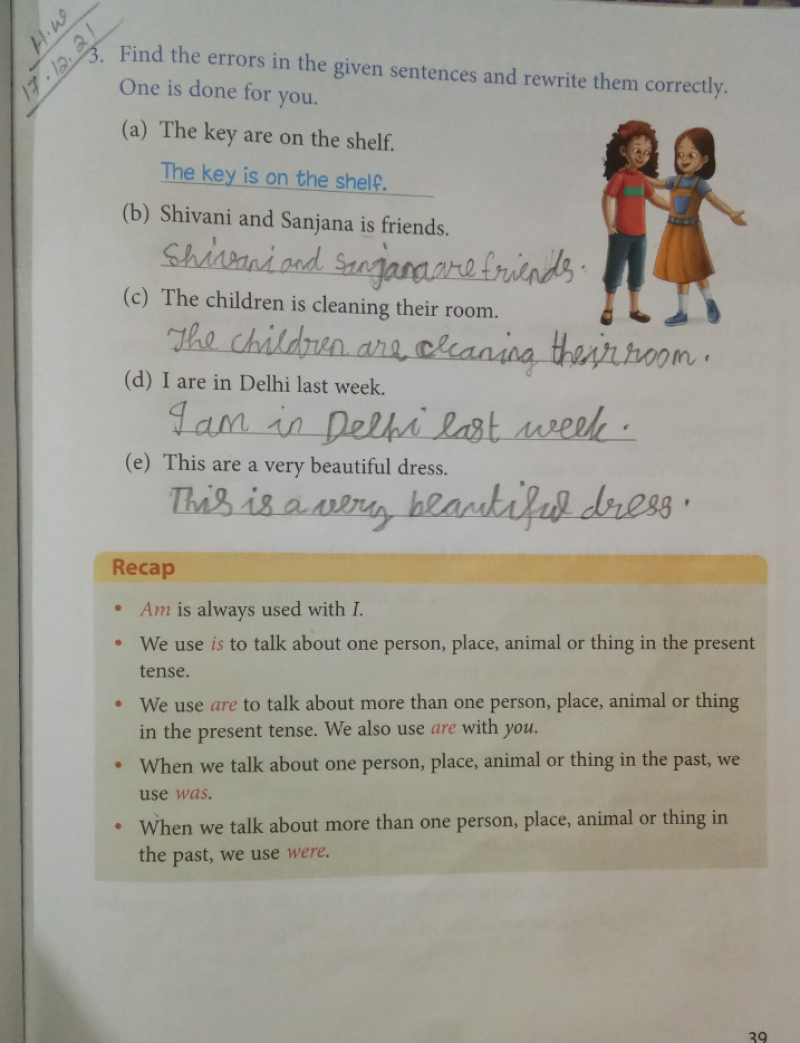 H.W
17.12.21
3. Find the errors in the given sentences and rewrite them correctly.
One is done for you.
(a) The key are on the shelf.
The key is on the shelf.
(b) Shivani and Sanjana is friends.
Shivani and Sanjana are friends.
(c) The children is cleaning their room.
The children are cleaning their room.
(d) I are in Delhi last week.
I am in Delhi last week.
(e) This are a very beautiful dress.
This is a very beautiful dress.
Recap
• Am is always used with I.
• We use is to talk about one person, place, animal or thing in the present
tense.
• We use are to talk about more than one person, place, animal or thing
in the present tense. We also use are with you.
• When we talk about one person, place, animal or thing in the past, we
use was.
• When we talk about more than one person, place, animal or thing in
the past, we use were.
39